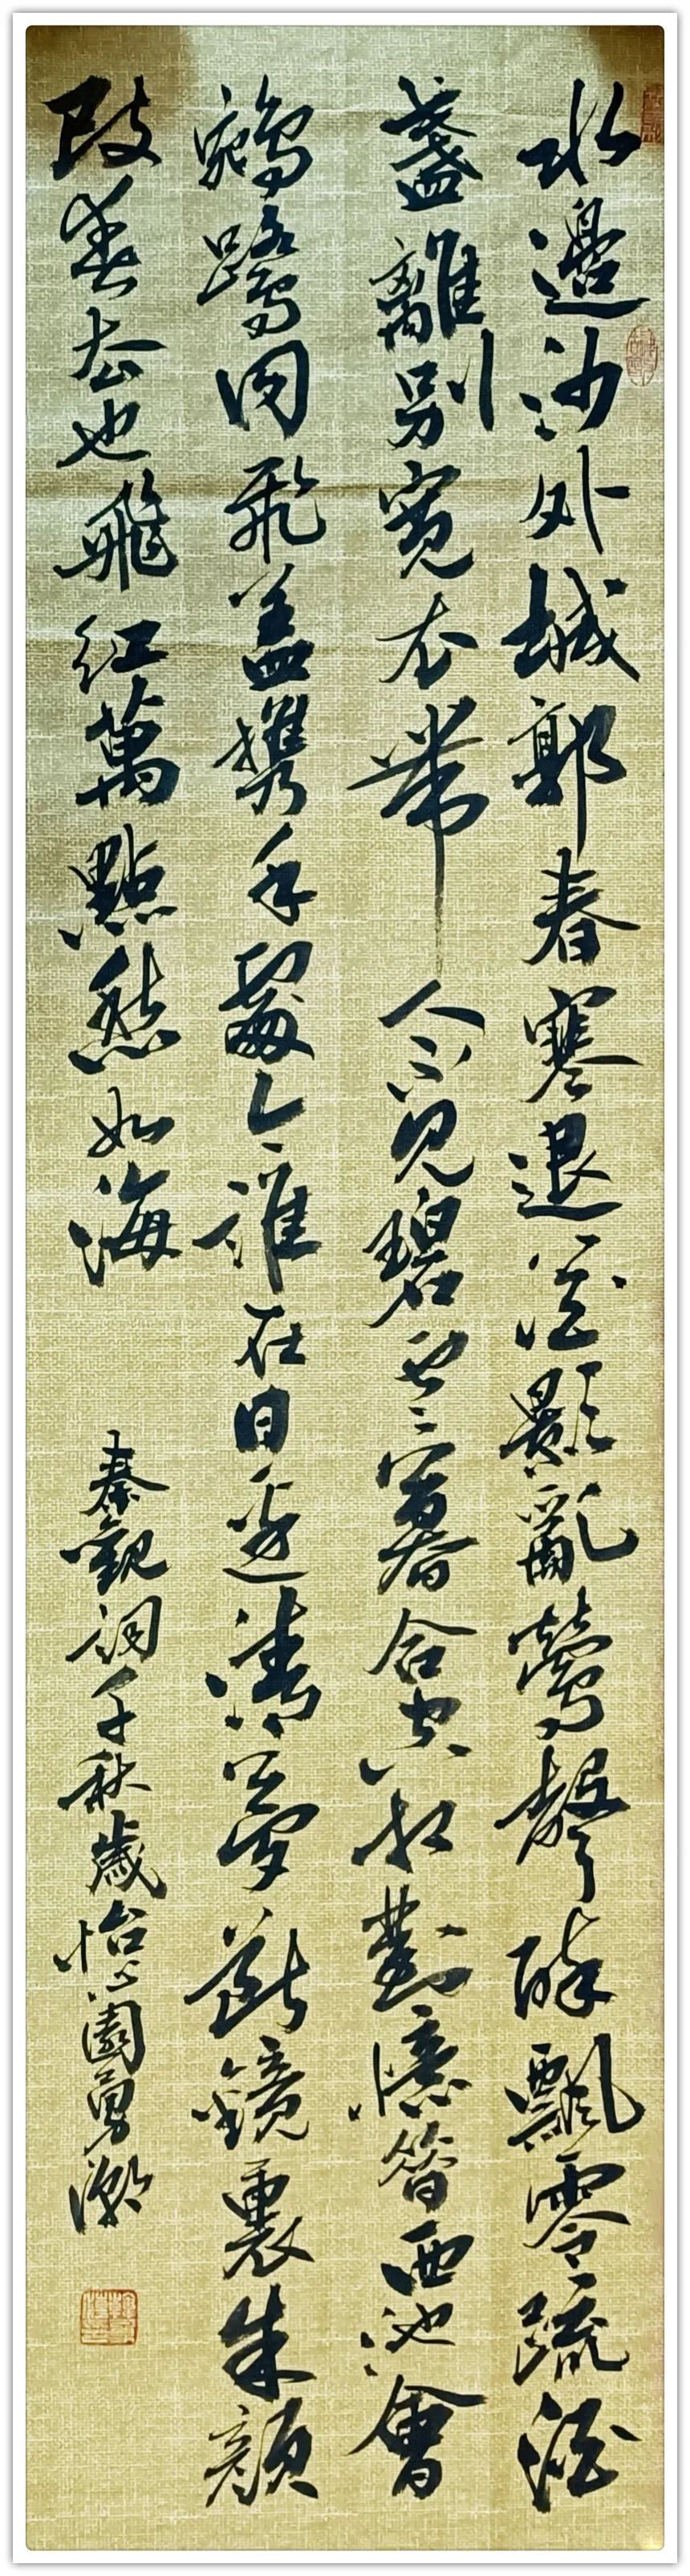 水邊沙外城郭春寒退花影亂鶯聲碎飄零疏酒
盞離別寬衣帶人不見碧雲暮合空相對憶昔西池會
鵷鷺同飛蓋攜手處今誰在日邊清夢斷鏡裏朱顏
改春去也飛紅萬點愁如海
秦觀詞千秋歲怡心園勇潮